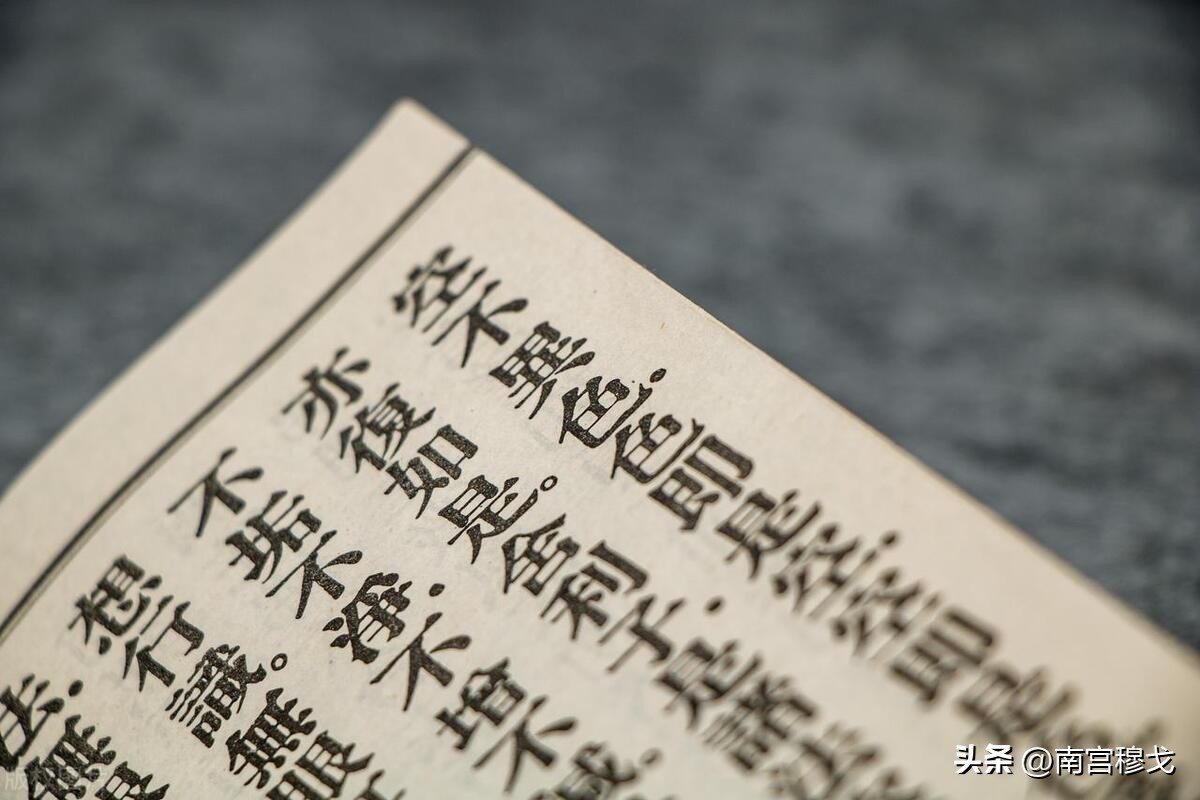 空不異色.色即是空.空即是
亦復如是。舍利子.是諸法
不垢不淨.不增不減.
想行識。無眼
法.無眼
头条 @南宫穆戈